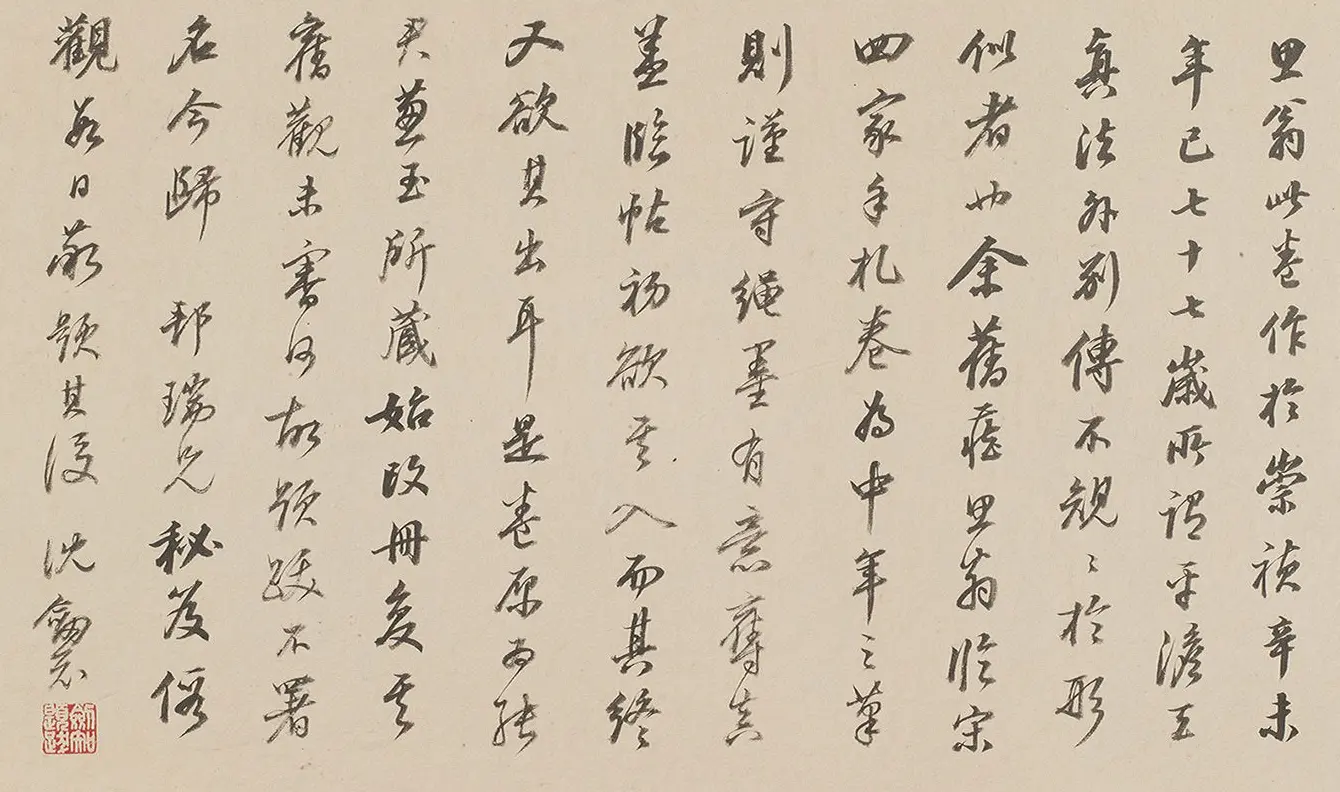 思翁此卷作於崇禎辛未
年已七十七歲所謂平澹天
真法外別傳不規〻於形
似者也余舊蓄思翁臨宋
四家手札卷為中年之筆
則謹守繩墨有意摩真
蓋臨帖初欲其入而其終
又欲其出耳是卷原為張
君蔥玉所藏始改冊復其
舊觀未審何故題跋不署
名今歸邦瑞兄秘笈俗
觀數日敬題其後沈劍知
劍知題跋